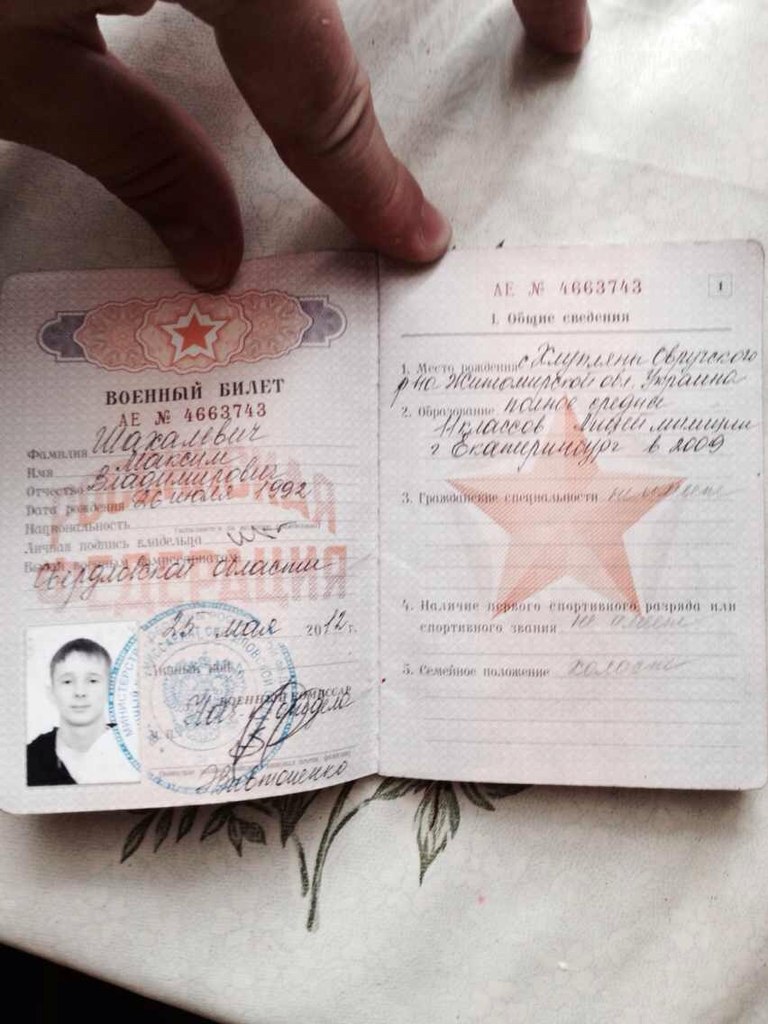 ВОЕННЫЙ БИЛЕТ
АЕ № 4663743
Фамилия Шахалевич
Имя Максим
Отчество Владимирович
Дата рождения 26 июля 1992
Национальность
Личная подпись владельца
Свердловской области
25 мая 2012 г.
АЕ № 4663743
1
I. Общие сведения
1. Место рождения с Хлупляни Овручского
р-на Житомирской обл. Украина
2. Образование полное среднее
11 классов
г Екатеринбург в 2009
3. Гражданские специальности не имеет
4. Наличие первого спортивного разряда или
спортивного звания не имеет
5. Семейное положение холост